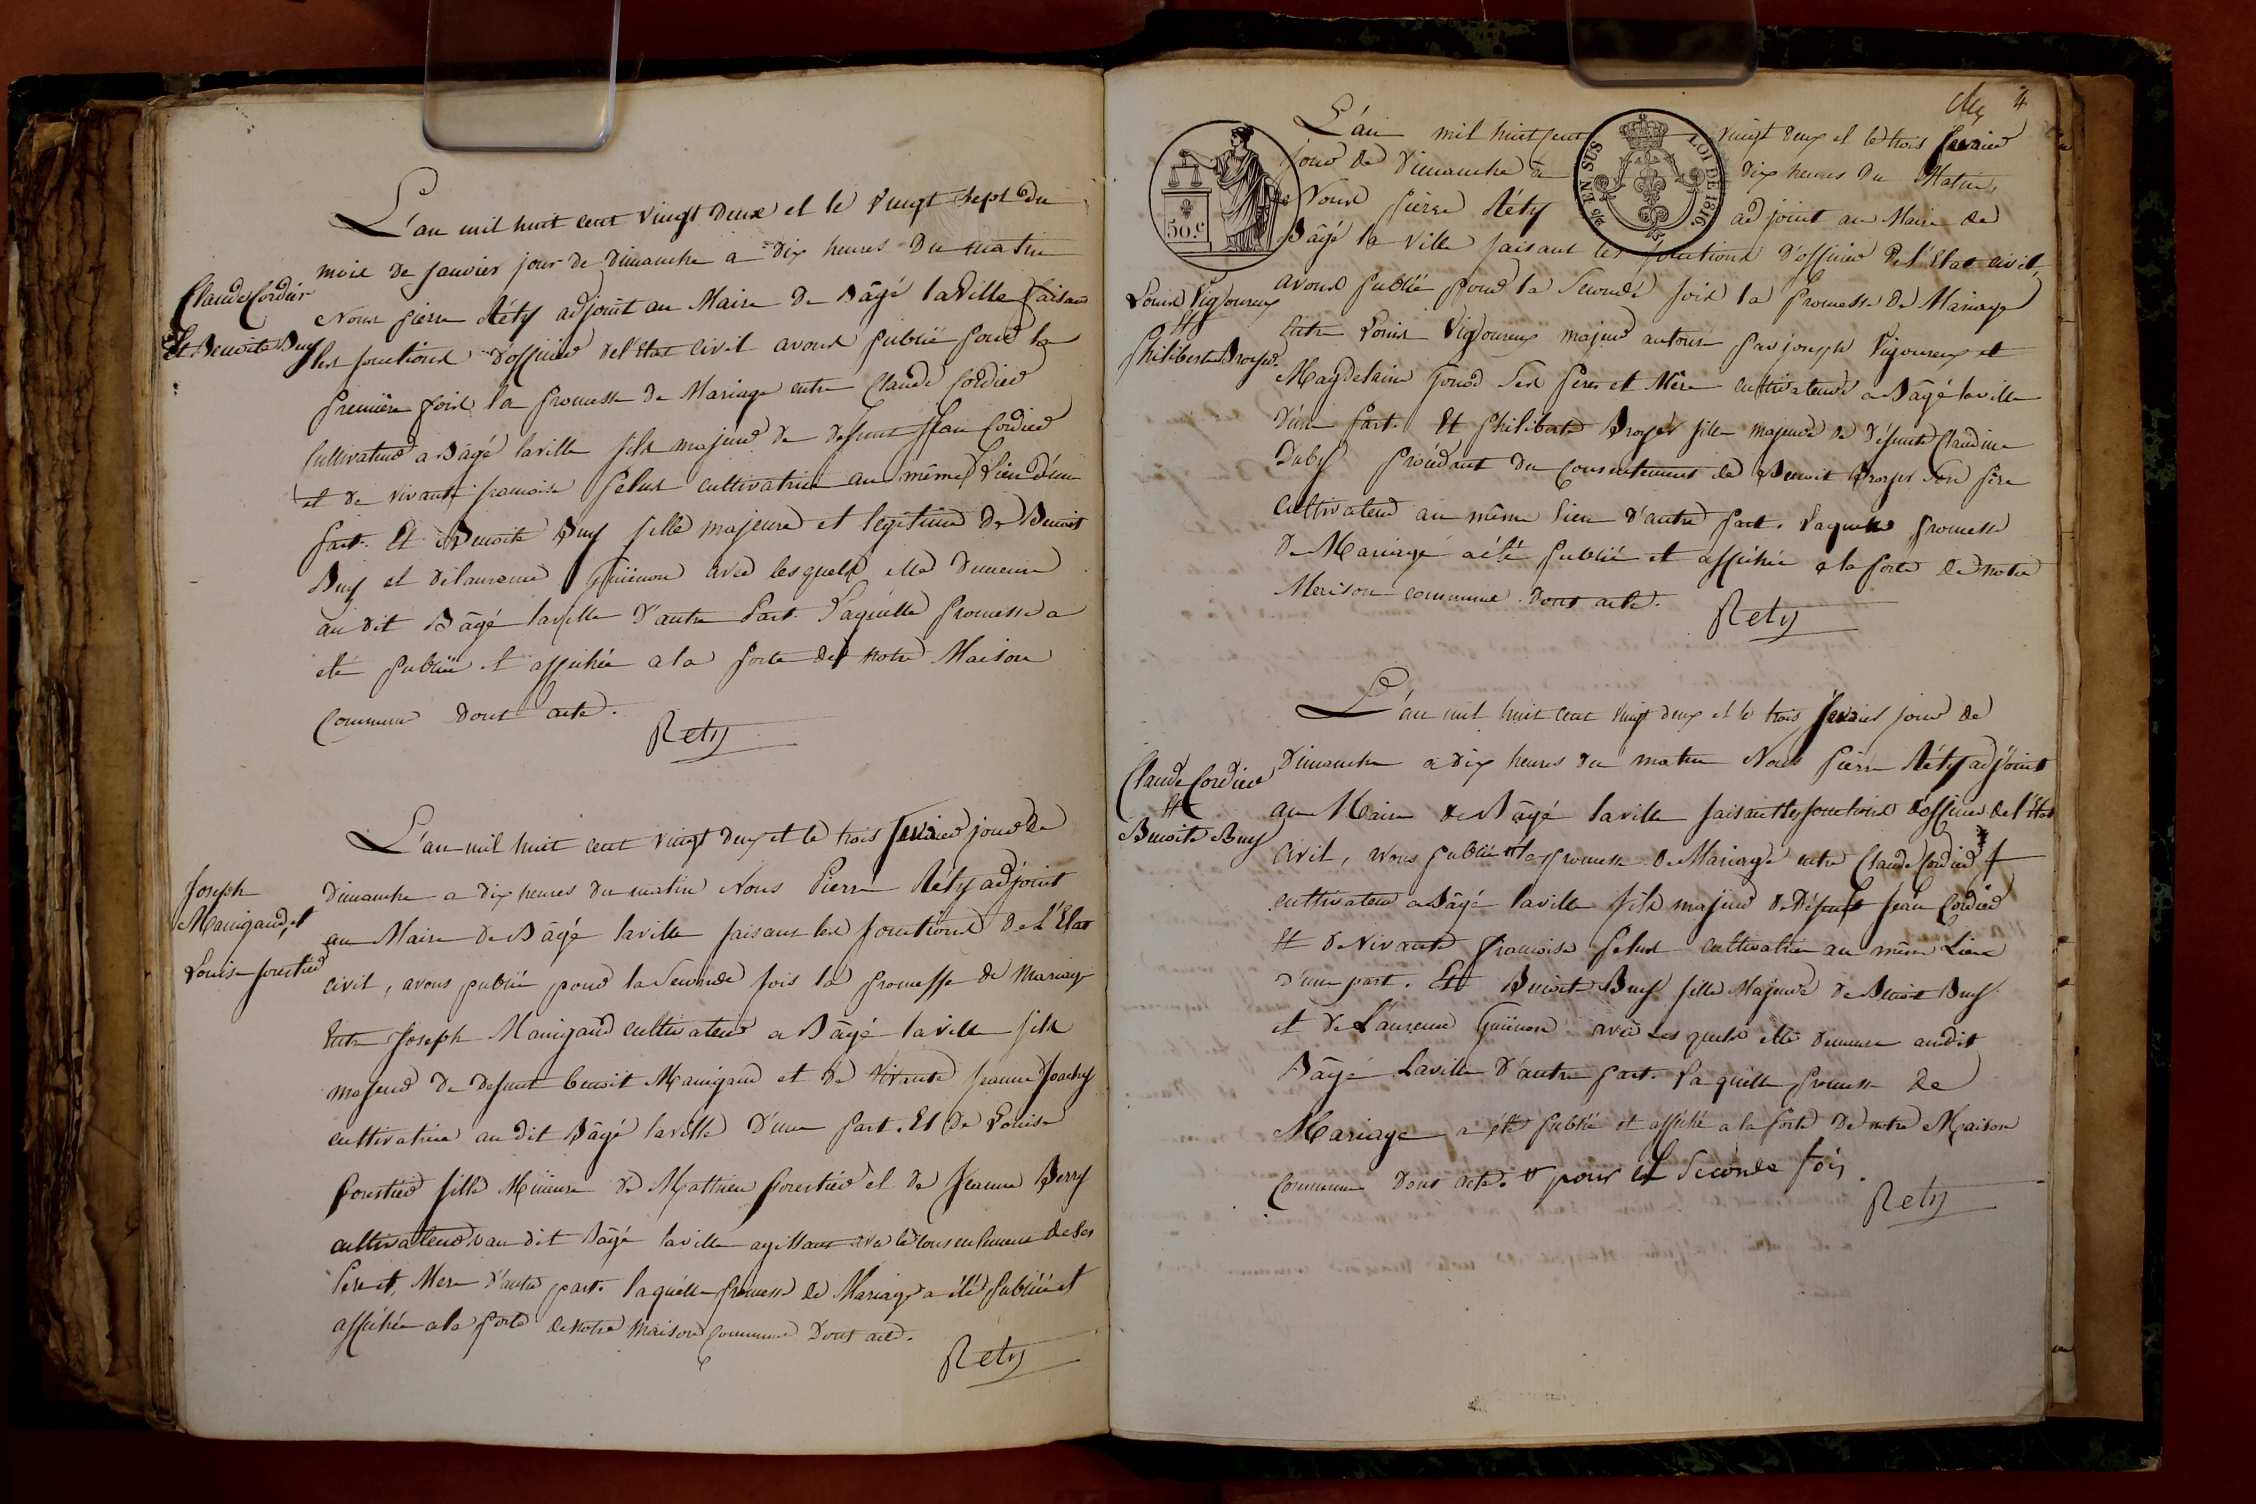 L'an mil huit cent vingt deux et le vingt sept du
mois de janvier jour de Dimanche a dix heures du matin
Claude Cordier
Et Benoite Buy
Nous pierre Réty adjoint au Maire de Bâgé la Ville faisant
les fonctions d'officier de l'Etat civil avons publié pour la
première fois la promesse de Mariage entre Claude Cordier
Cultivateur a Bâgé laville fils majeur de defunt Jean Cordier
et de vivante francoise pelus cultivatrice au même Lieu d'une
part. Et Benoite Buy fille majeure et legitime de Benoit
Buy et de laurence Guiénon avec lesquels elle demeure
au dit Bâgé laville d'autre Part. Laquelle promesse a
eté publiée et affichée a la porte de notre Maison
Commune Dont acte.
Rety
L'an mil huit cent vingt deux et le trois fevrier jour de
Joseph
Manigand, et
Louise forestier
Dimanche a dix heures du matin Nous Pierre Réty adjoint
au Maire de Bâgé laville faisant les fonctions de L'Etat
civil, avons publié pour la Seconde fois la promesse de mariage
Entre Joseph Manigand cultivateur a Bâgé laville fils
majeur de defunt benoit Manigand et de vivante jeanne
cultivatrice au dit Bâgé laville D'une part. Et De Louise
forestier fille Mineure de Matthieu forestier et de Jeanne Berry
cultivateurs au dit Bâgé laville agissant avec le consentement de ses
Pere et Mere d'autre part. laquelle promesse de Mariage a été publiée et
affichée a la porte de notre maison commune Dont acte.
Rety
4
50 C
2/5 EN SUS
LOI DE 1816
L'an mil huit cent vingt deux et le trois fevrier
jour de Dimanche a dix heures du Matin,
Nous pierre Réty adjoint au Maire de
Bâgé la Ville faisant les fonctions d'officier de l'Etat civil,
Louis Vigoureux
Et
philiberte Broyer
avons publié pour la Seconde fois la promesse de Mariage
Entre Louis Vigoureux majeur par joseph Vigoureux et
Magdelaine Gonod Ses peres et Mère cultivateurs a Bâgé laville
d'une part. Et philiberte Broyer fille majeure de défunte Claudine
Duby procédant du Consentement de Benoit Broyer Son père
Cultivateur au même Lieu d'autre part. Laquelle promesse
de Mariage a été publiée et affichée a la porte de notre
Maison commune. Dont acte.
Rety
L'an mil huit cent vingt deux et le trois fevrier jour de
Claude Cordier
Et
Benoite Buy
Dimanche a dix heures du matin Nous pierre Réty adjoint
au Maire de Bâgé laville faisant les fonctions d'officier de l'Etat
civil, avons publié la promesse de Mariage entre Claude Cordier
cultivateur a Bâgé laville fils majeur de Défunt Jean Cordier
Et de vivante francoise pelus cultivatrice au même Lieu
d'une part. Et Benoite Buy fille Majeure de Benoit Buy
et de Laurence Guiénon avec Les quels elle demeure audit
Bâgé Laville D'autre part. Laquelle promesse de
Mariage a été publiée et affiché a la porte de notre Maison
Commune Dont acte. pour la Seconde fois.
Rety